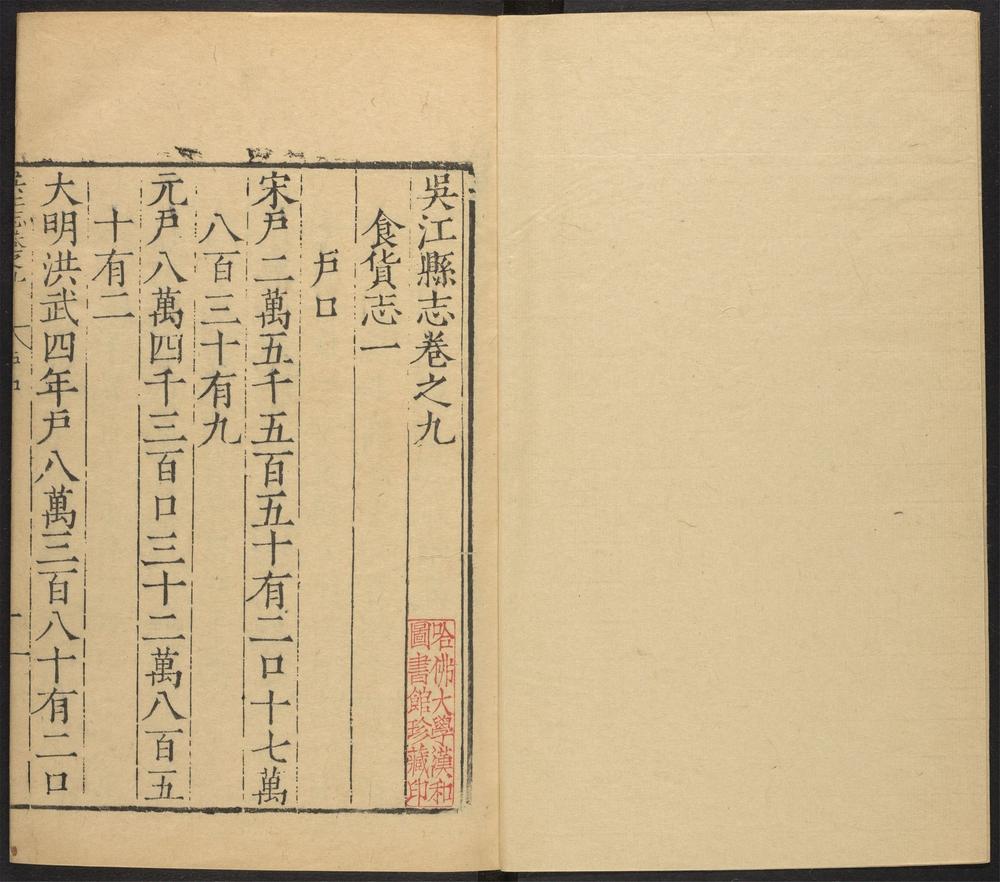 吳江縣志卷之九
食貨志一
戶口
宋戶二萬五千五百五十有二口十七萬
八百三十有九
元戶八萬四千三百口三十二萬八百五
十有二
大明洪武四年戶八萬三百八十有二口
哈佛大學漢和
圖書館珍藏印